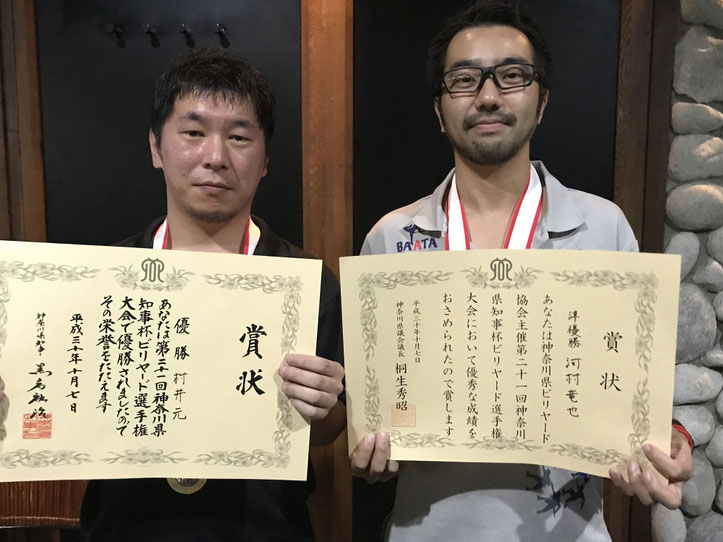 賞状
優勝 村井元
あなたは第二十一回神奈川県
知事杯ビリヤード選手権
大会で優勝されましたので
その栄誉をたたえます
平成三十年十月七日
神奈川県知事
賞状
準優勝 河村竜也
あなたは神奈川県ビリヤード
協会主催第二十一回神奈川
県知事杯ビリヤード選手権
大会において優秀な成績を
おさめられたので賞します
平成三十年十月七日
神奈川県議会議長 桐生秀昭